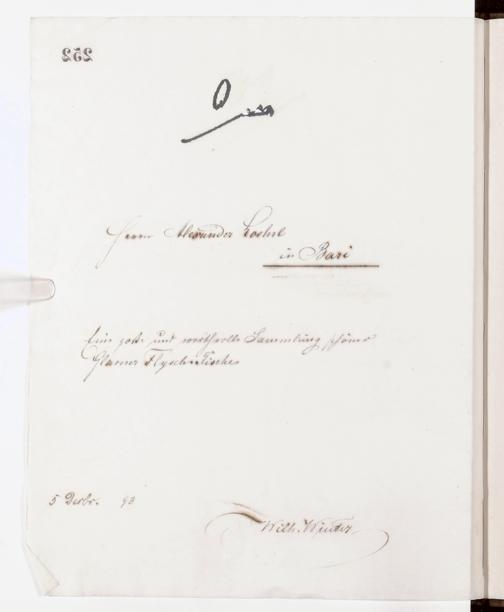 252
Herrn Alexander
in Bari
Eine gute und werthvolle Sammlung schöner
Glarner Flysch-Fische
5 Decbr. 93
Wilh. Winter